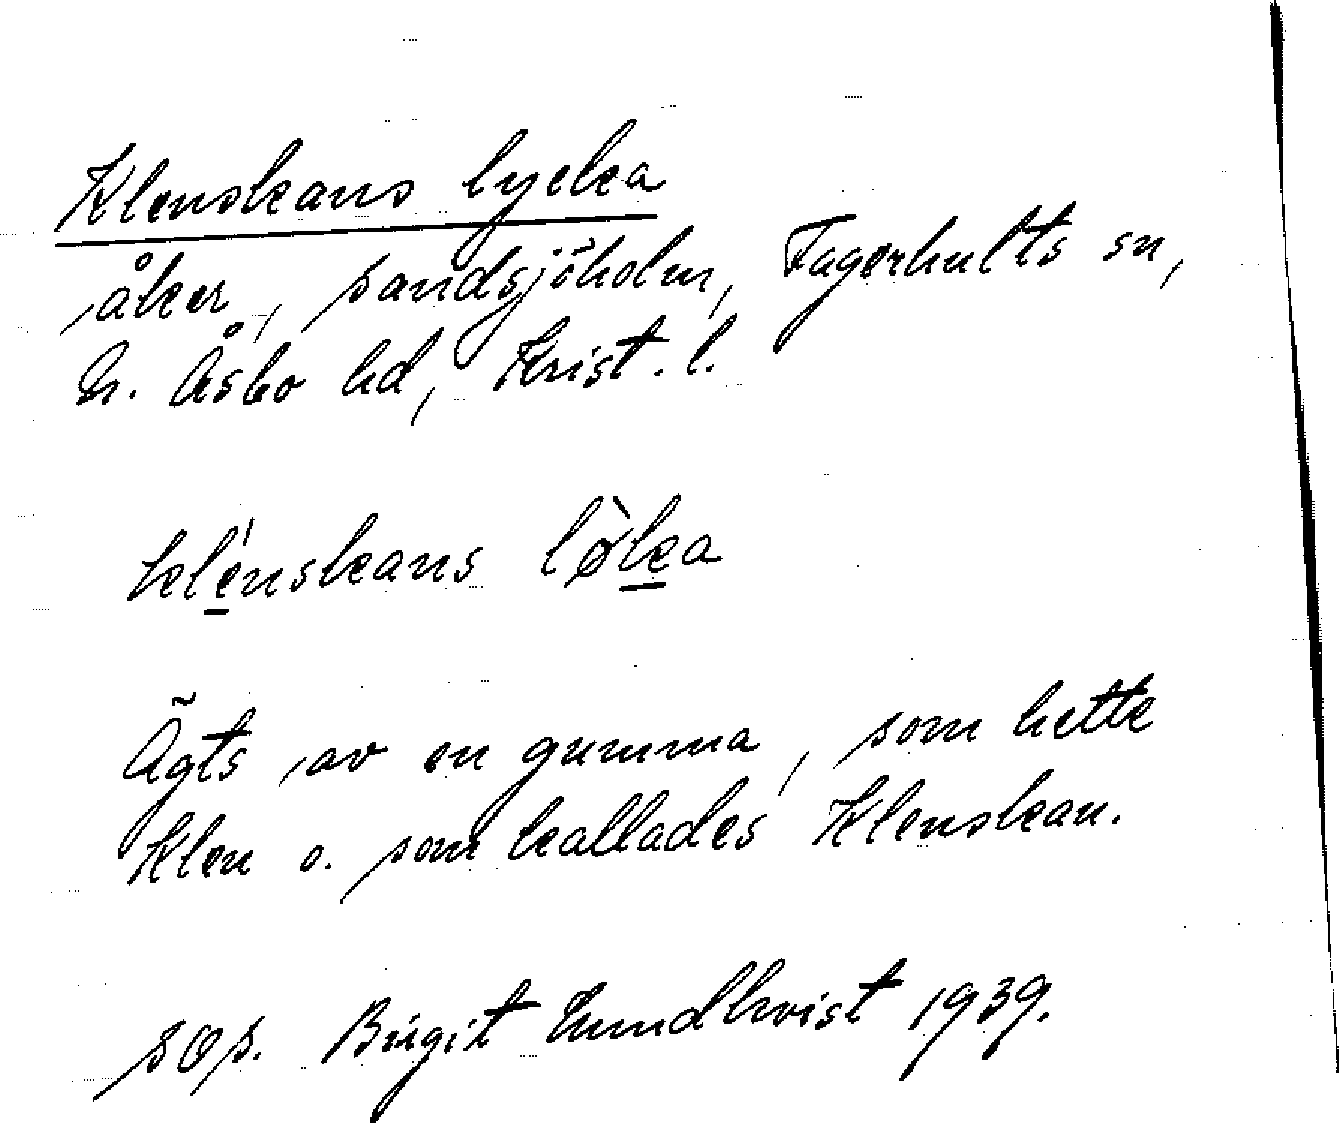 Klenskans lycka
åker, Sandsjöholm, Fagerhults sn,
N. Åsbo hd, Krist. l.
klénskans lø̀ka
Ägts av en gumma, som hette
Klen o. som kallades Klenskan.
SOS. Birgit Lundkvist 1939.